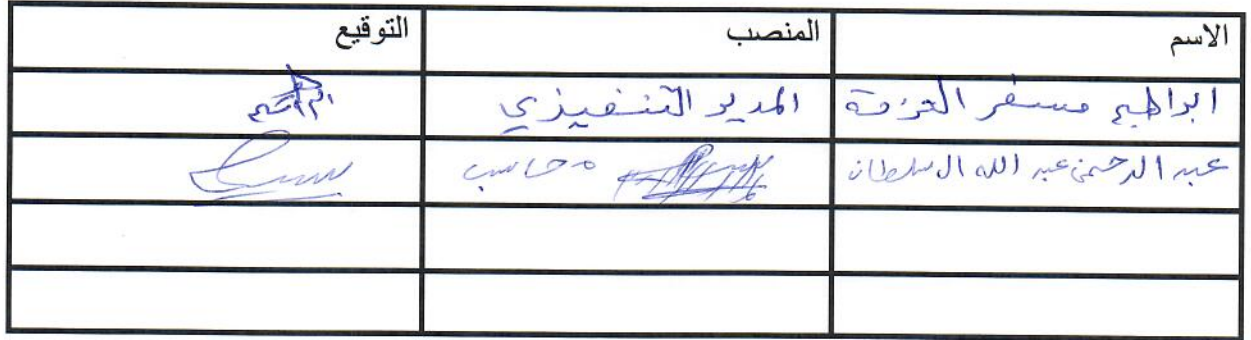 الاسم المنصب التوقيع
ابراهيم مسفر المدير التنفيذي
عبد الرحمن عبد الله ال سلطان محاسب